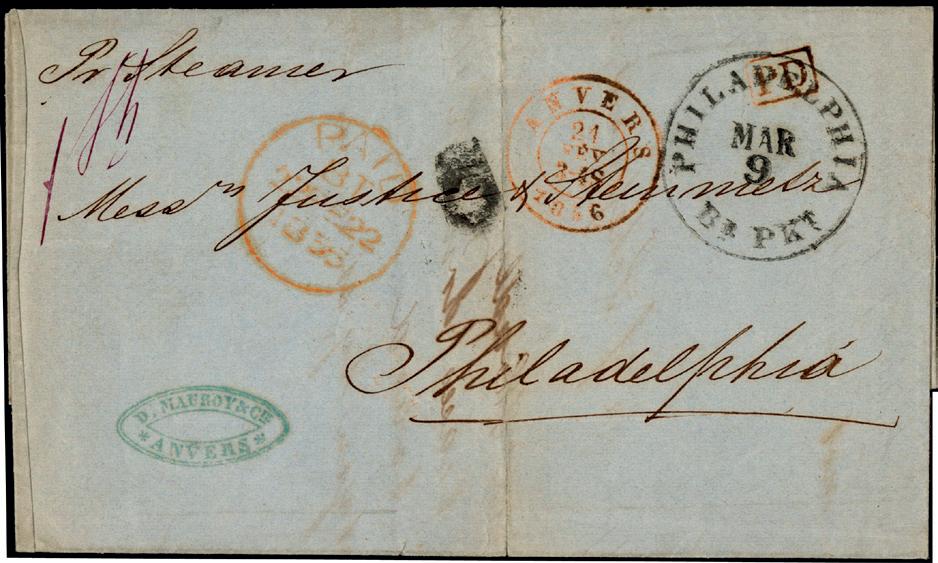 Pr Steamer
PD
PHILADELPHIA
MAR
9
Br PKT
ANVERS
21
1856
PAID
22
Messrs Justice & Steinmetz
Philadelphia
D. MAUROY & CIE
* ANVERS *